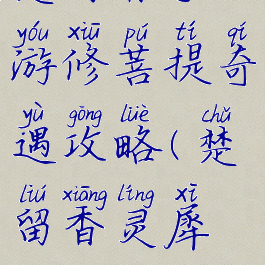 yóu xiū pú tí qí
游修菩提奇
yù gōng lüè chǔ
遇攻略(楚
liú xiāng líng xī
留香灵犀